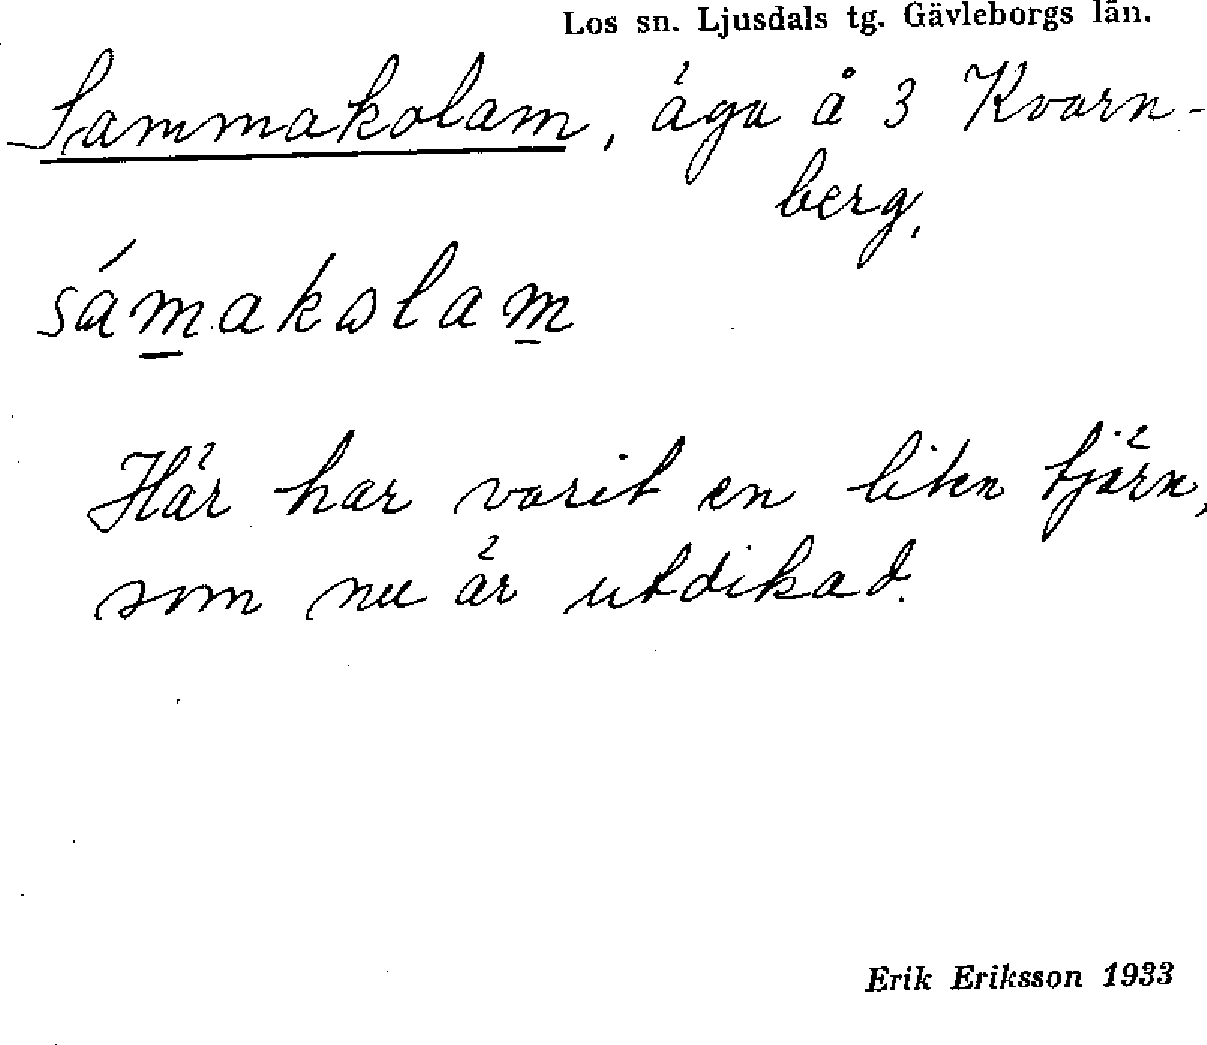 Los sn. Ljusdals tg. Gävleborgs län.
Sammakolam, äga å 3 Kvarn-
berg.
sámakωlam
Här har varit en liten tjärn,
som nu är utdikad.
Erik Eriksson 1933